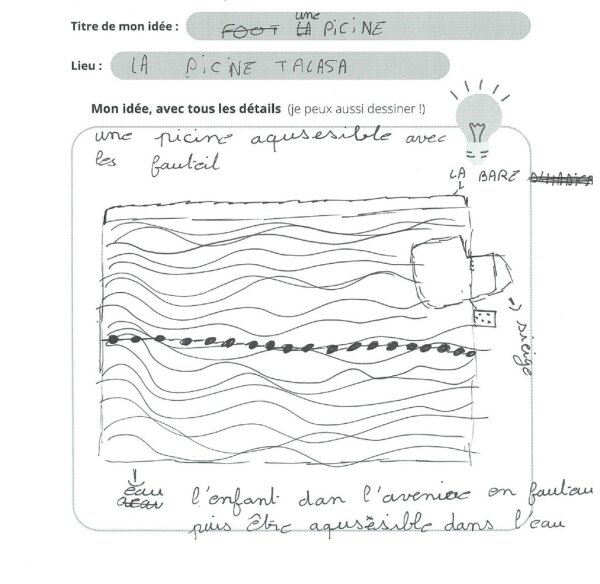 Titre de mon idée : FOOT LA une PICINE
Lieu : LA PICINE TALASA
Mon idée, avec tous les détails (je peux aussi dessiner !)
une picine aqusesible avec
les fauteil
LA BARE
sieige
eau
l'enfant dan l'avenire en fauteau
puis être aqusèsible dans l'eau